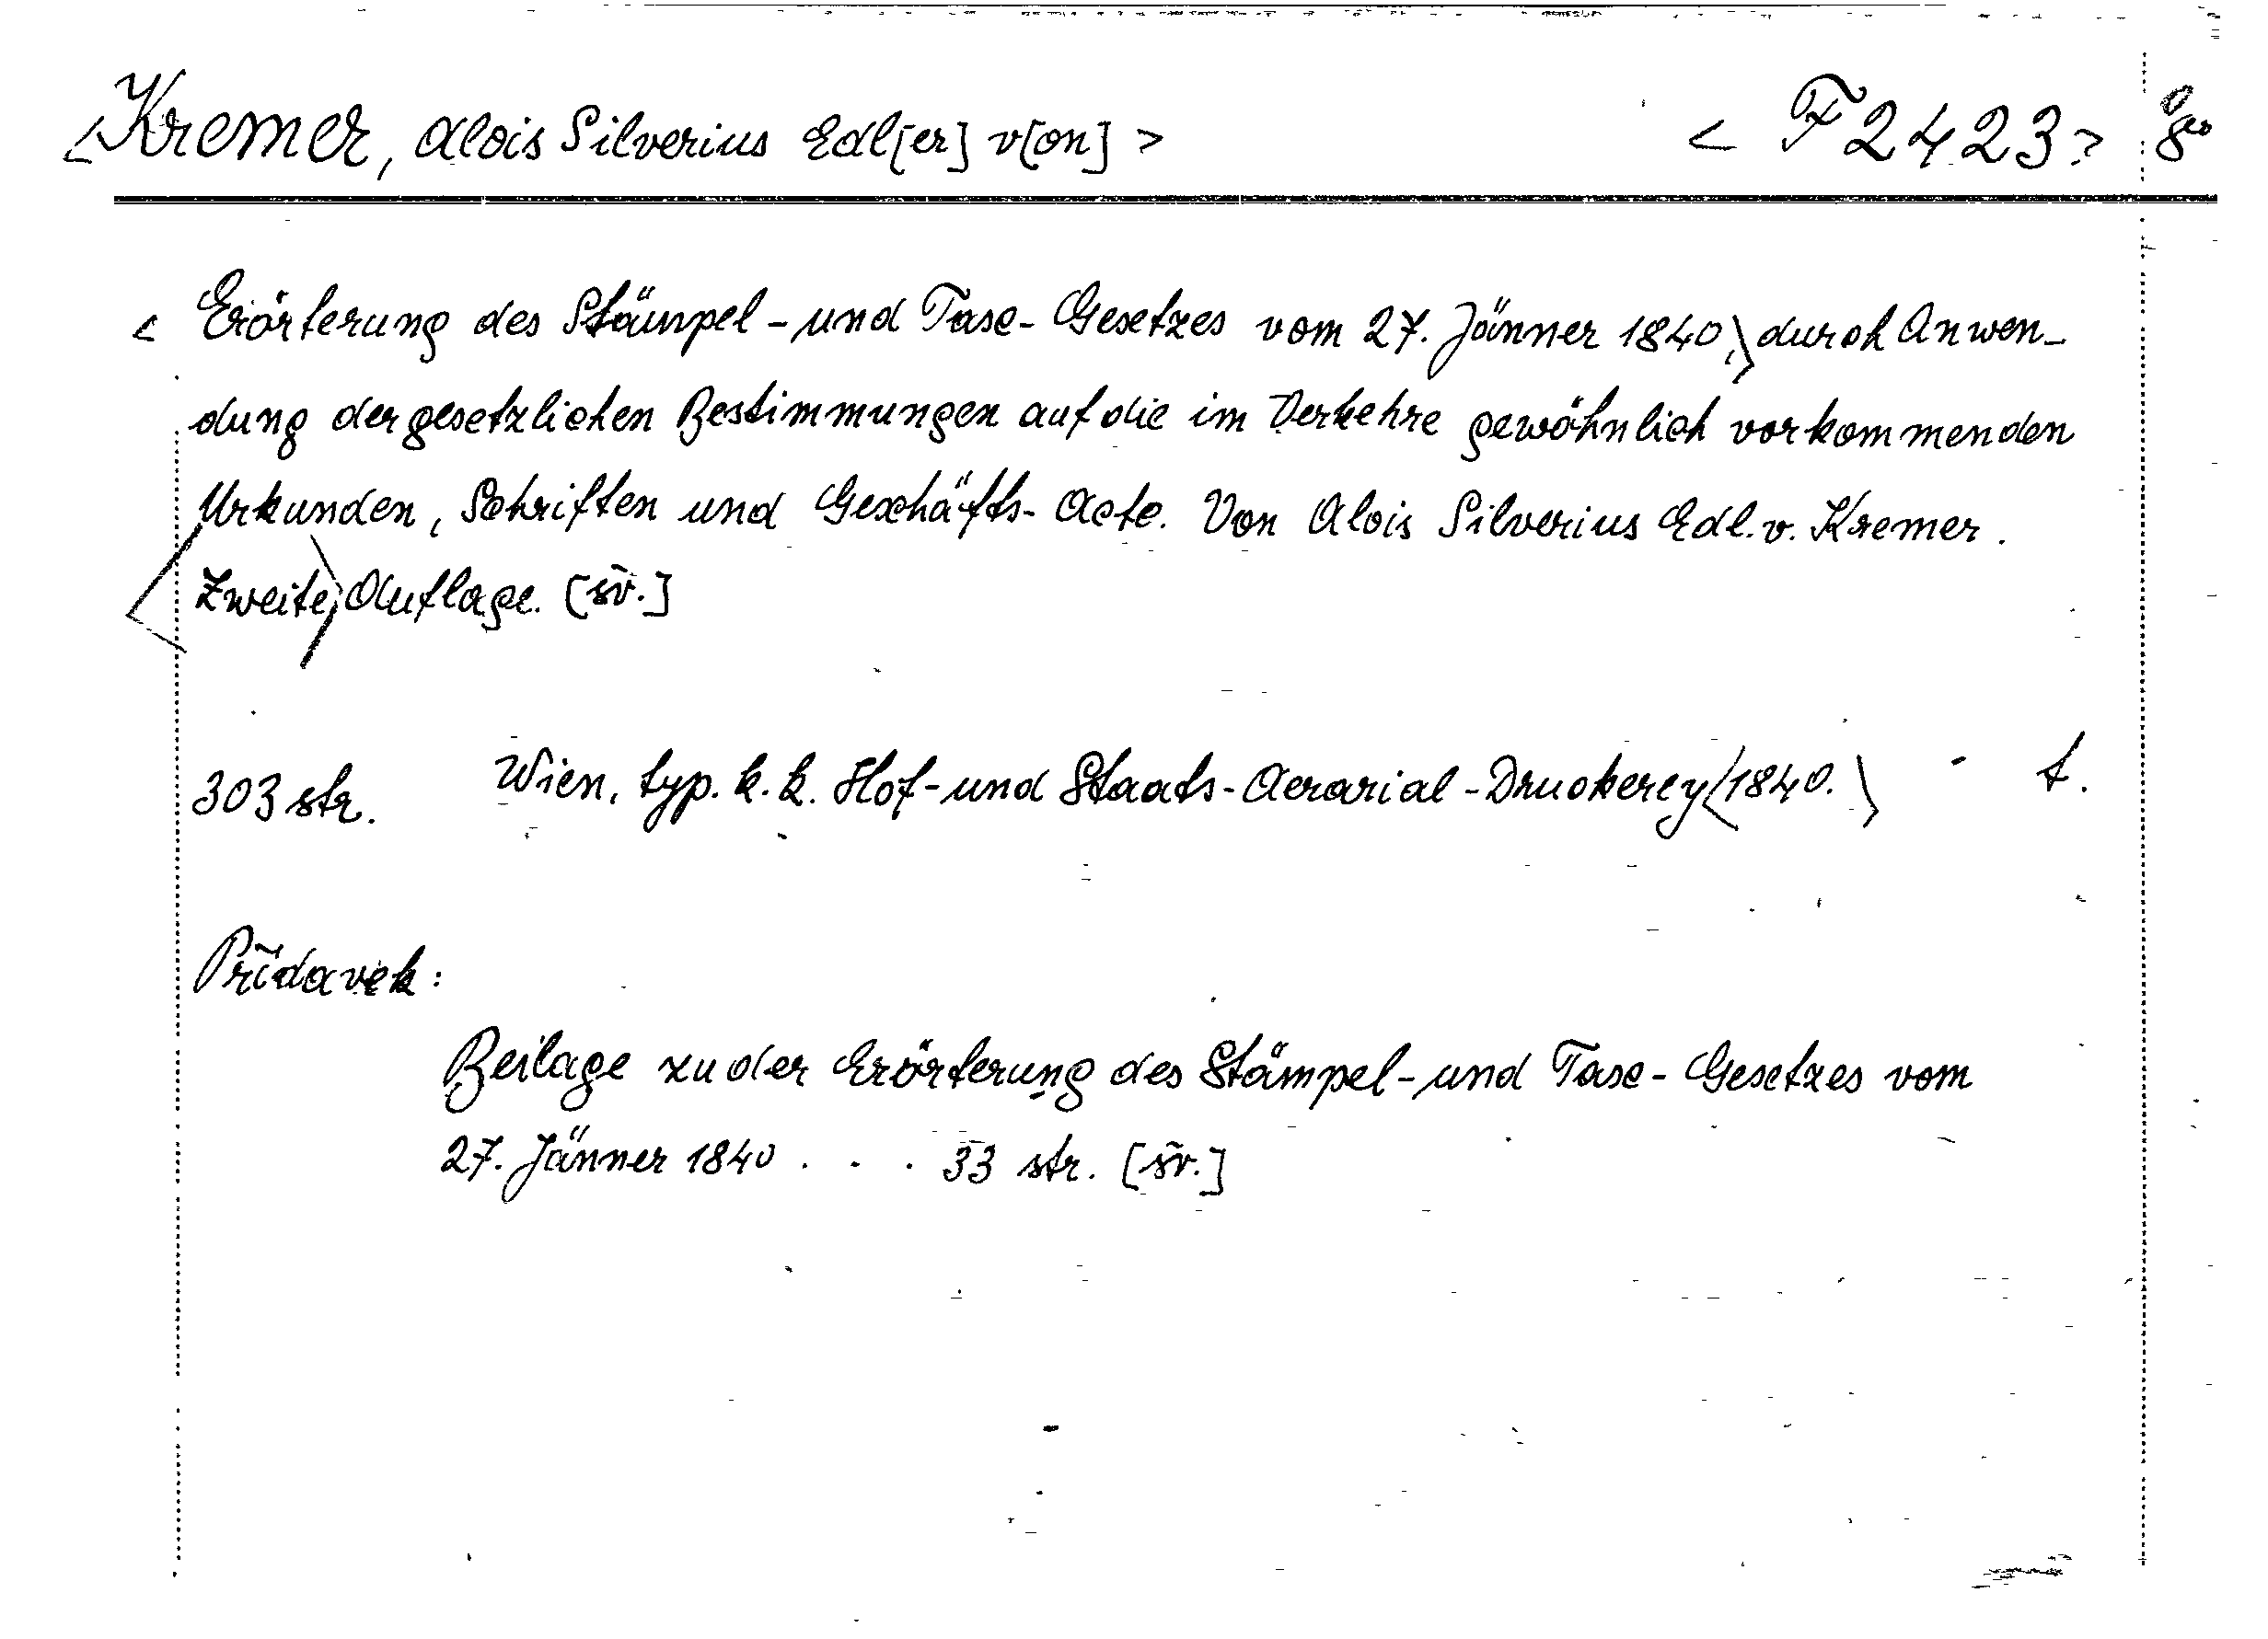 <Kremer, Alois Silverius Edl[er] v[on]> <F 2423> 8°
<Erörterung des Stämpel-und Taxe-Gesetzes vom 27. Jänner 1840,> durch Anwen-
dung der gesetzlichen Bestimmungen auf die im Verkehre gewöhnlich vorkommenden
Urkunden, Schriften und Geschäfts-Acte. Von Alois Silverius Edl. v. Kremer.
<Zweite> Auflage. [šv.]
303 str. Wien, typ. k. k. Hof-und Staats-Aerarial-Druckerey <1840.> t.
Přídavek:
Beilage zu der Erörterung des Stämpel-und Taxe-Gesetzes vom
27. Jänner 1840 . . . 33 str. [šv.]